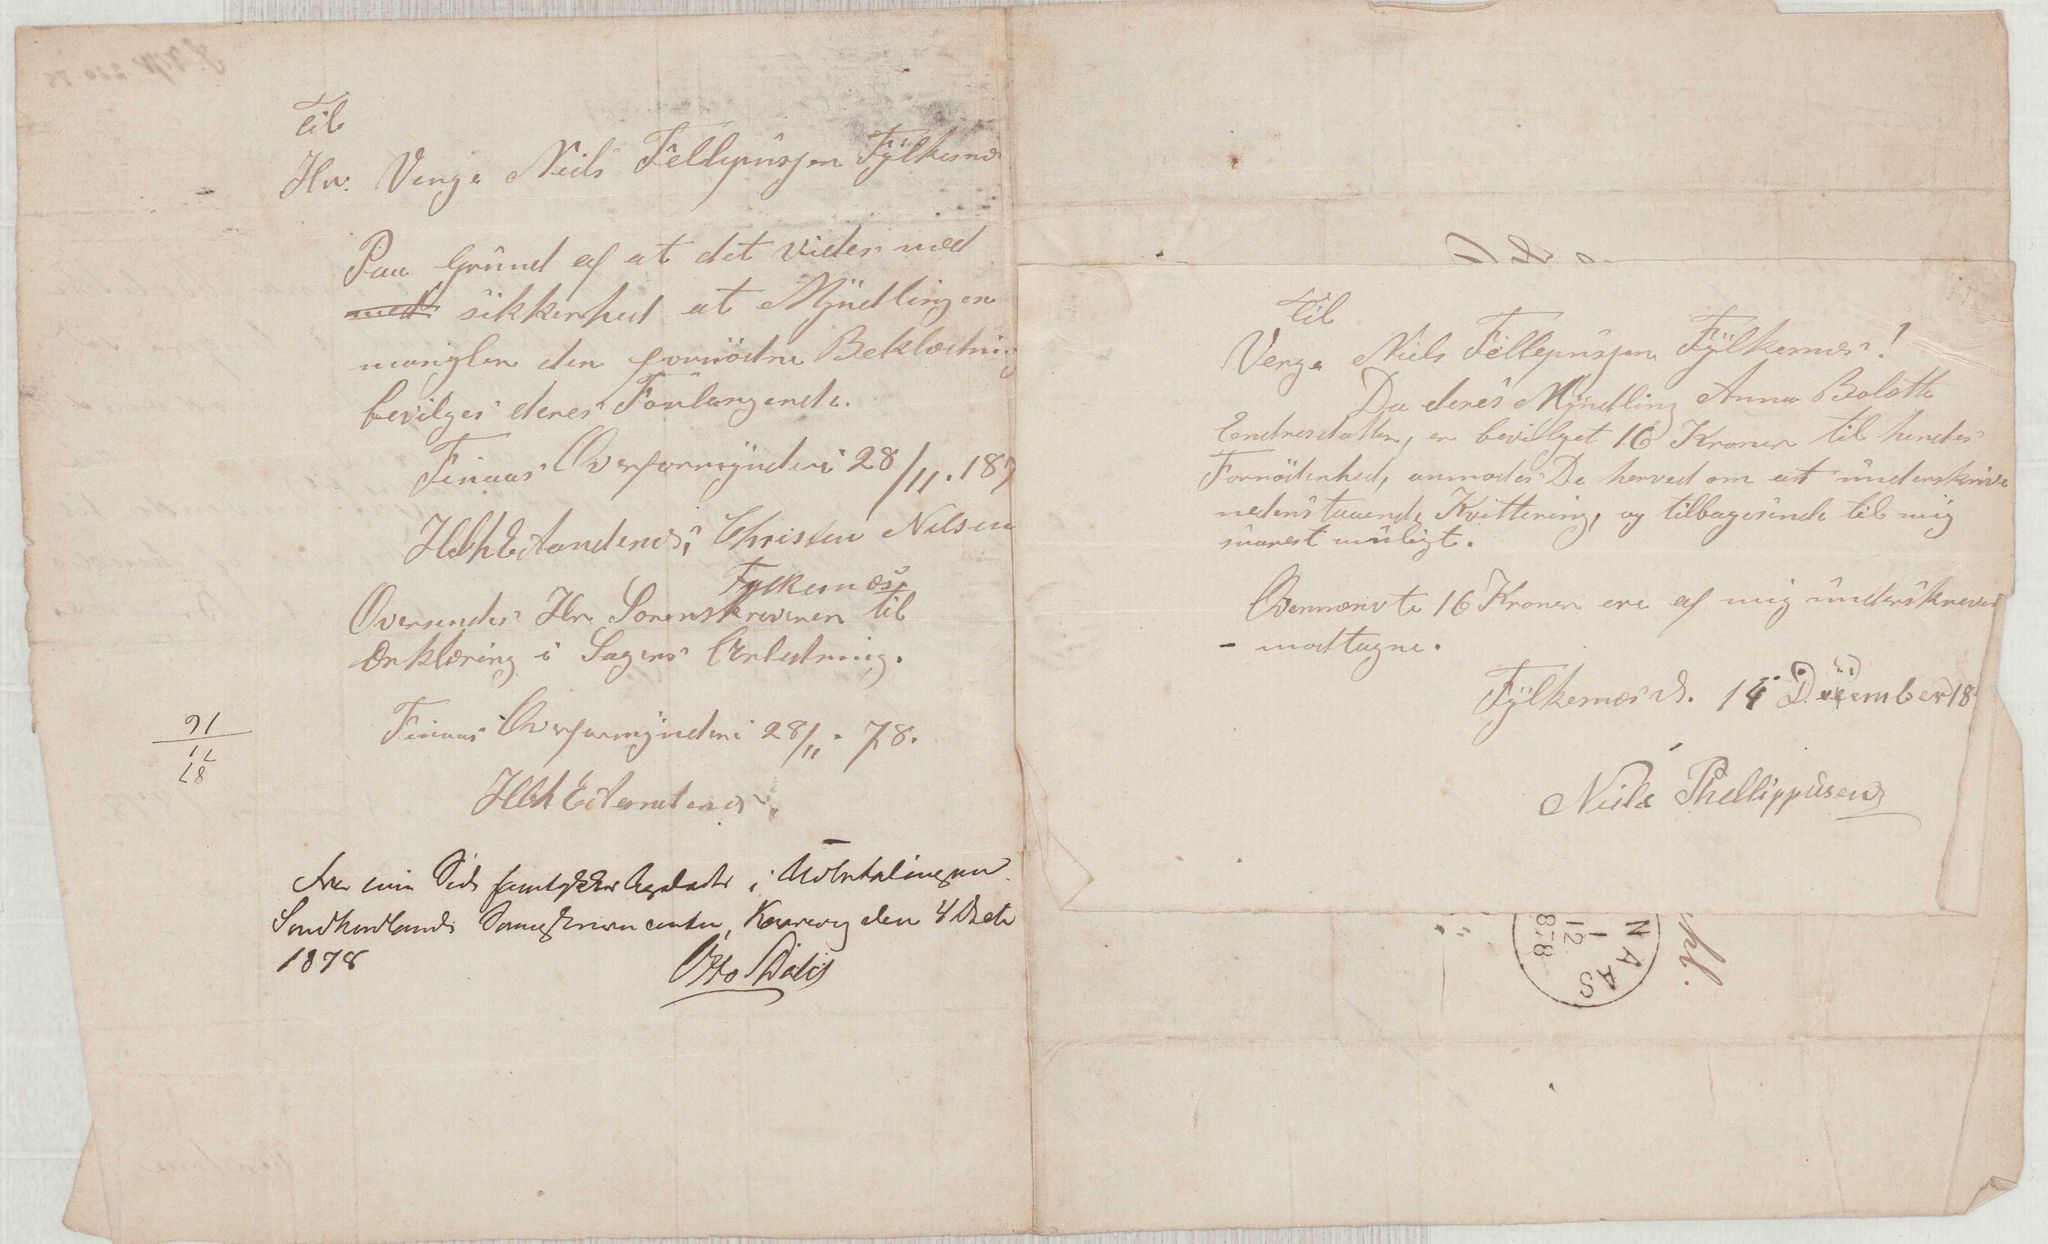 Til
Hr. Verge Niels Fellepusjen Fylkesnæs
Paa Grund af at det vides med
med sikkerhed at Myndlingen
mangler den fornödne Beklædning
bevilges deres Forlangende.
Finaas Overformynderi 28/11. 187
Christen Nilsen
Fylkesnæs
Oversendes Hr. Sorenskriveren til
Erklæring i Sagens Anledning.
Finaas Overformynderi 28/11. 78.
16
17
87
Fra min Side samtykkes i Udbetalingen
Sondhordlands Sorenskriverembede, den 4 Decbr
1878
Til
Verge Niels Fellepusjen Fylkesnæs!
Da deres Myndling Anna Bolette
Endresdatter, er bevillget 16 Kroner til hendes
Fornödenhed, anmodes De herved om at underskrive
nedenstaaende Kvittering, og tilbagesende til mig
snarest muligt.
Ovennævnte 16 Kroner ere af mig underskreven
- modtagne.
Fylkesnæs d. 14 December 18
Niels Phellippusen
NAAS
1
12
878